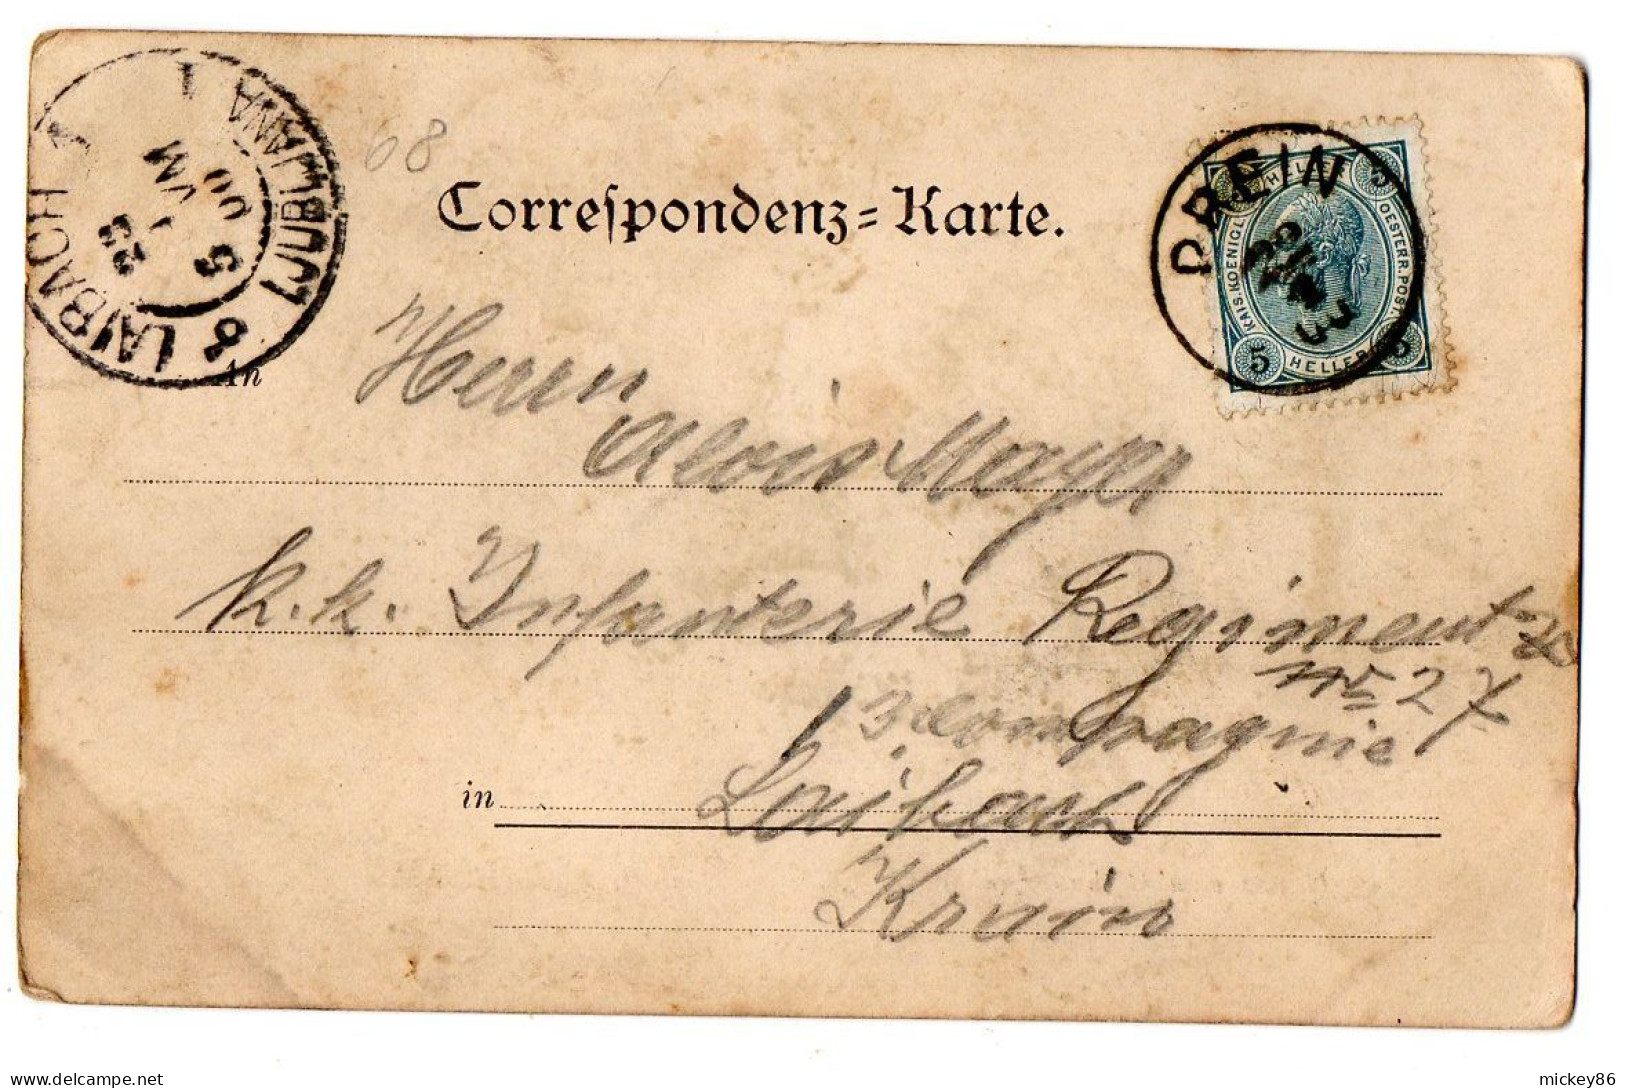 LAIBACH 1
LJUBLJANA 1
23
5
00
8
VM
68
Correſpondenz=Karte.
PREIN
KAIS. KOENIGL. OESTERR. POST
5 HELLER 5
An
Herrn
Alois Mayer
k.k. Infanterie Regiment
No 27
3 Compagnie
in Laibach
Krain
delcampe.net
mickey86